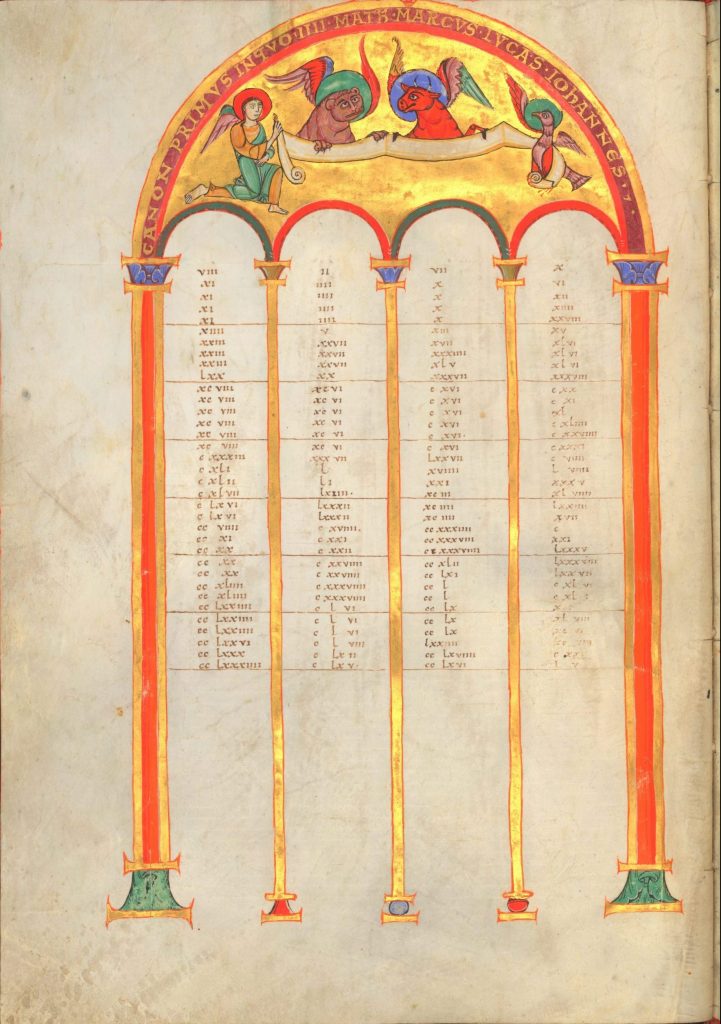 CANON PRIMVS INQVO IIII · MATH · MARCVS · LVCAS · IOhANNES ·
viii ii vii x
xi iiii x vi
xi iiii x xii
xi iiii x xiiii
xi iiii x xxviii
xiiii v xiii xv
xxiii xxvii xvii xlvi
xxiii xxvii xxxiiii xlvi
xxiii xxvii xlv xlvi
lxx xx xxxvii xxxviii
xc viii xc vi c xvi c xx
xc viii xc vi c xvi c xi
xc viii xc vi c xvi xl
xc viii xc vi c xvi c xliiii
xc viii xc vi c xvi· c xxviiii
xc viii xc vi c xvi
c xxxiii xxxvii lxxvii c viiii
c xli l xviiii l viiii
c xlii li xxi xxxv
c xlvii lxiiii· xc iii xl viiii
c lxvi lxxxii xc iiii
c lxvi lxxxii xc iiii xvii
cc viiii c xviiii. cc xxxiiii c
cc xi c xxi cc xxxviii xxi
cc xx c xxii cc xxxviiii lxxxv
cc xx c xxviiii cc xlii lxxxviii
cc xx c xxviiii cc lxi lxxvii
cc xliiii c xxxviiii cc l
cc xliiii c xxxviiii cc l
cc lxxiiii c l vi cc lx
cc lxxiiii c l vi cc lx
cc lxxiiii c l vi cc lx
cc lxxvi c l viii lxxiiii
cc lxxx c lxii cc lxviiii
cc lxxxiiii c lxv· cc lxvi